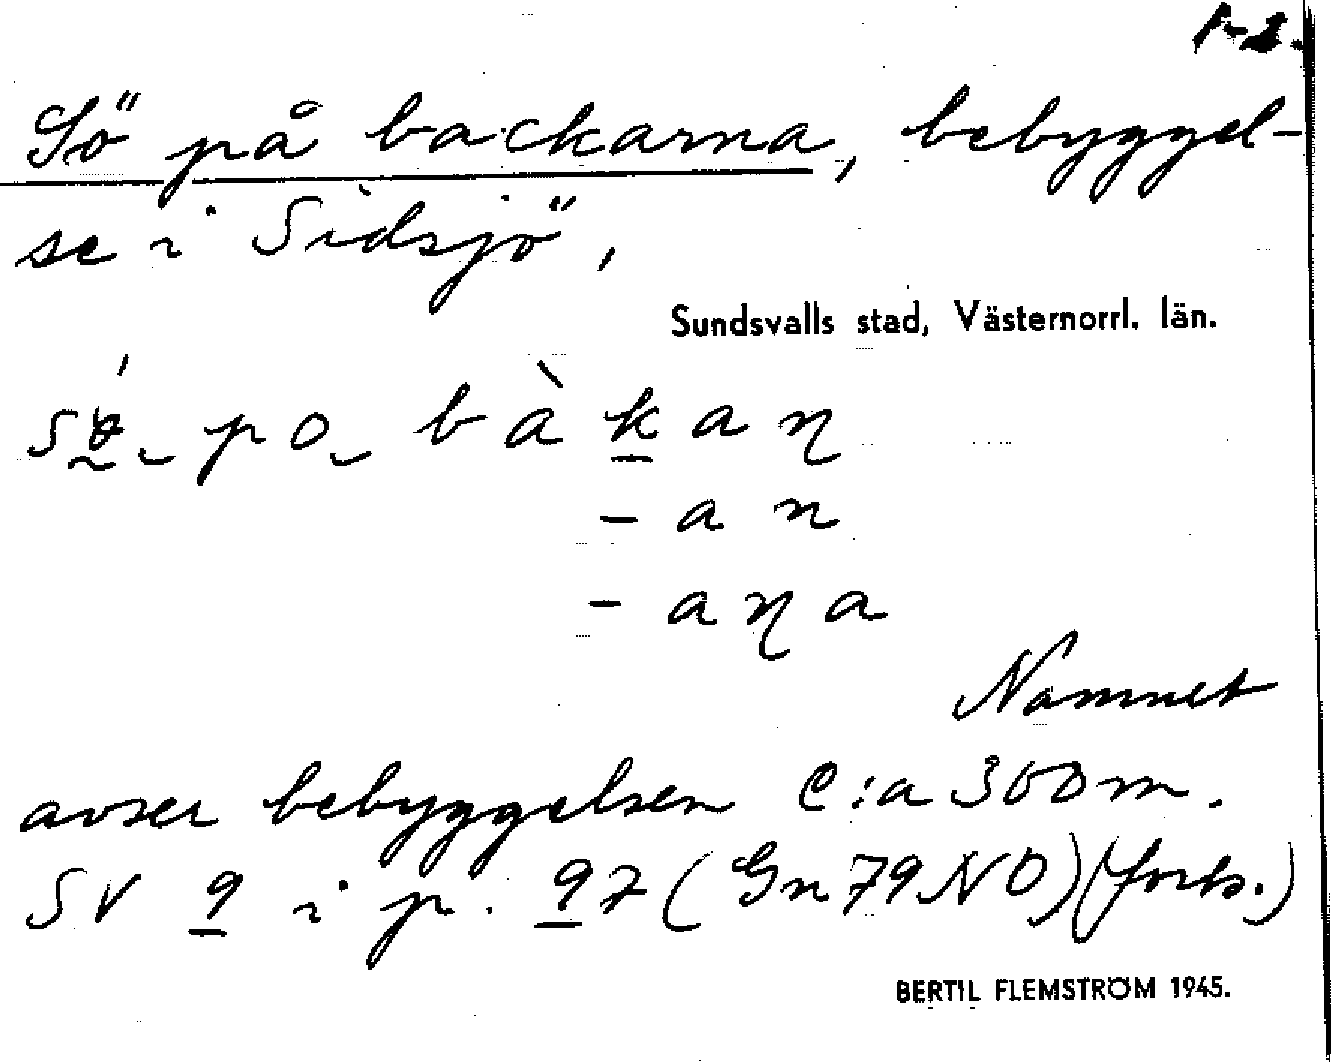 1-2.
Sö på backarna, bebyggel-
se i Sidsjö,
Sundsvalls stad, Västernorrl. län.
po bàkaɳ
- an
- aɳa
Namnet
avser bebyggelsen c:a 300 m.
SV 9 i p. 97 (Gn 79 NO) (forts.)
BERTIL FLEMSTRÖM 1945.